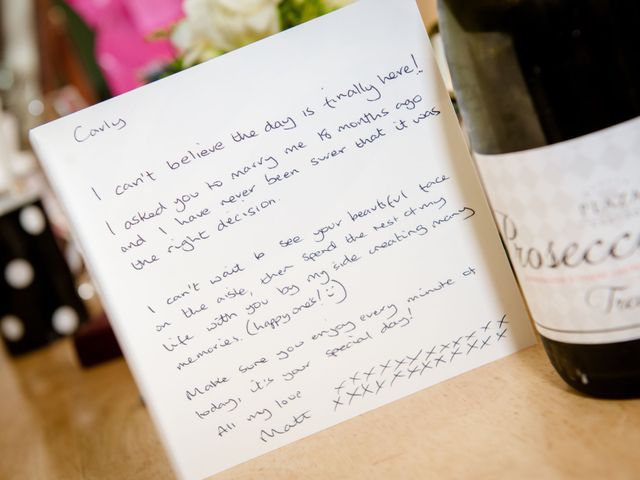 Carly
I can't believe the day is finally here!
I asked you to marry me 18 months ago
and I have never been surer that it was
the right decision.
I can't wait to see your beautiful face
on the aisle, then spend the rest of my
life with you by my side creating many
memories. (happy ones! :))
Make sure you enjoy every minute of
today, it's your special day!
All my love xxxxxxxxxxxx
Matt xxxxxxxxxxxx
Prosecco
Tre